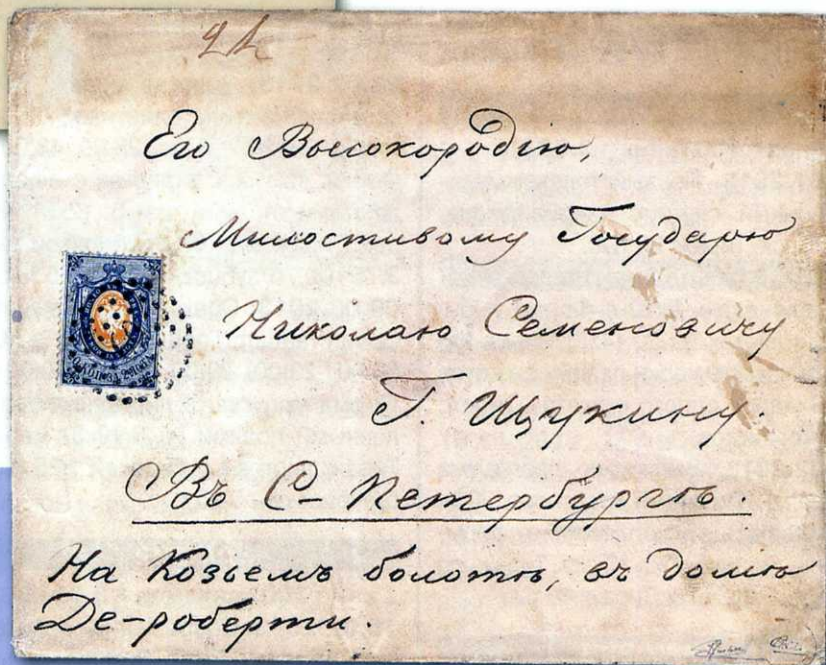 Его Высокородію,
Милостивому Государю
Николаю Семеновичу
Г. Щукину.
Въ С-Петербургѣ.
На Козьемъ болотѣ, въ домѣ
Де-роберти.